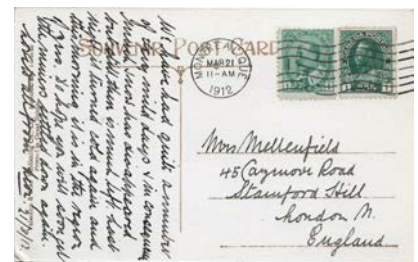 SOUVENIR POST CARD
MONTREAL, QUE
MAR 21
11-AM
1912
We have had quite a number
of very mild days & in consequence
the snow has disappeared
and all
night it turned cold again and
this morning it is in the region
of zero. So hope you will soon get
the nice weather soon again.
Love to all from 21/3/12
Mrs Mellenfield
45 Cazenove Road
Stamford Hill
London N.
England